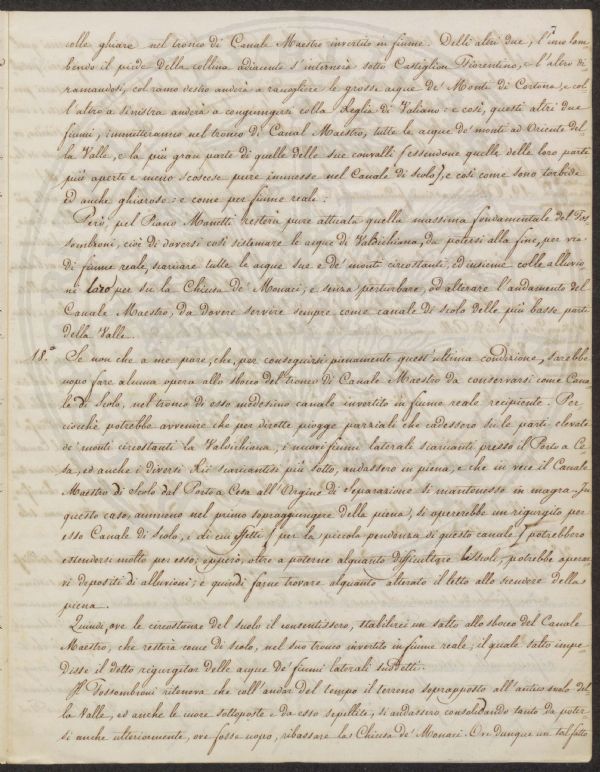 7
colle ghiare nel tronco di Canale Maestro invertito in fiume. Delli altri due, l'uno lam-
bendo il piede della collina adiacente s'internerà sotto Castiglion Fiorentino, e l'altro di-
ramandosi, col ramo destro anderà a raccogliere le grosse acque de' Monti di Cortona, e col
l'altro a sinistra anderà a congiungersi colla Reglia di Valiano: e così, questi altri due
fiumi, immetteranno nel tronco di Canal Maestro, tutte le acque de' monti ad Oriente del
la Valle, e la più gran parte di quelle delle sue convalli (essendone quelle delle loro parti
più aperte e meno scoscese pure immesse nel Canale di scolo), e così come sono torbide
ed anche ghiarose: e come per fiume reale.
Però, pel Piano Manetti resterà pure attuata quella massima fondamentale del Fos
sombroni, cioè di doversi così sistemare le acque di Valdichiana, da potersi alla fine, per via
di fiume reale, scaricare tutte le acque sue e de' monti circostanti, ed insieme colle alluvio
ni loro per su la Chiusa de' Monaci; e senza perturbare, od alterare l'andamento del
Canale Maestro, da dovere servire sempre come canale di scolo delle più basse parti
della Valle.
18.° Se non che a me pare, che, per conseguirsi pienamente quest'ultima condizione, sarebbe
uopo fare alcuna opera allo sbocco del tronco di Canale Maestro da conservarsi come Cana
le di Scolo, nel tronco di esso medesimo canale invertito in fiume reale recipiente. Per
ciocchè potrebbe avvenire che per dirotte piogge parziali che cadessero su le parti elevate
de' monti circostanti la Valdichiana, i nuovi fiumi laterali scaricanti presso il Porto a Ce
sa, ed anche i diversi Rii scaricantisi più sotto, andassero in piena, e che in vece il Canale
Maestro di Scolo dal Porto a Cesa all'Argine di Separazione si mantenesse in magra. In
questo caso, ammeno nel primo sopraggiungere della piena, si opererebbe un rigurgito per
esso Canale di Scolo, i di cui effetti (per la piccola pendenza di questo canale) potrebbero
estendersi molto per esso; epperò, oltre a poterne alquanto difficultare lo scolo, potrebbe operar
vi depositi di alluvioni; e quindi farne trovare alquanto alterato il letto allo scendere della
piena.
Quindi, ove le circostanze del suolo il consentissero, stabilirei un salto allo sbocco del Canale
Maestro, che resterà come di scolo, nel suo tronco invertito in fiume reale; il quale salto impe-
disse il detto rigurgitar delle acque de' fiumi laterali suddetti.
Il Fossombroni riteneva che coll'andar del tempo il terreno soprapposto all'antico suolo del
la Valle, ed anche le cuore sottoposte e da esso sepellite, si andassero consolidando tanto da poter-
si anche ulteriormente, ove fosse uopo, ribassare la Chiusa de' Monaci. Ove dunque un tal fatto